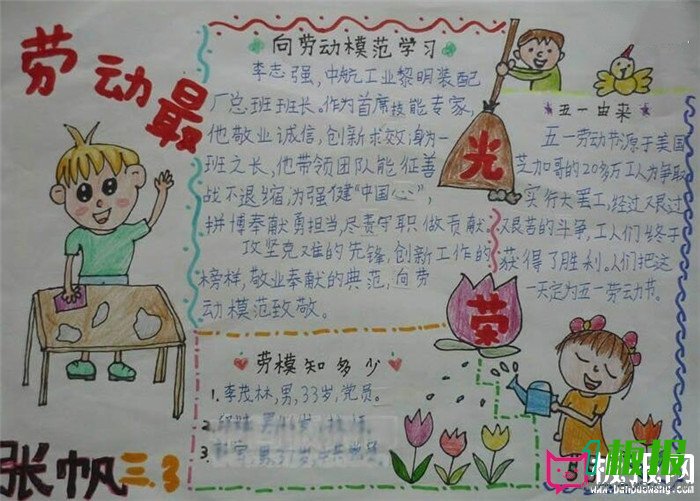 劳动最
光
荣
向劳动模范学习
李志强，中航工业黎明装配
厂总班班长。作为首席技能专家，
他敬业诚信，创新求效；身为一
班之长，他带领团队能征善
战不退缩，为强健“中国心”，
拼博奉献勇担当，尽责守职做贡献。
攻坚克难的先锋，创新工作的
榜样，敬业奉献的典范，向劳
动模范致敬。
五一由来
五一劳动节源于美国
芝加哥的20多万工人为争取
实行大罢工，经过又艰过
又艰苦的斗争，工人们终于
获得了胜利。人们把这
一天定为五一劳动节。
劳模知多少
1.李茂林，男，33岁，党员。
2.
3.
张帆三.3
板报网
www.banbaowang.com